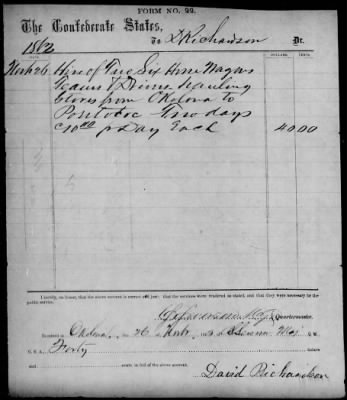 FORM NO. 22.
The Confederate States,
To D Richardson Dr.
1862
DATE. DOLLARS. CENTS.
Novbr 26 Hire of Two Six Horse Wagons
Teams & Drivers Hauling
Stores from Okolona to
Pontotoc Two days
@ 10.00 pr Day Each 40 00
I certify, on honor, that the above account is just; that the services were rendered as stated, and that they were necessary for the public service.
Quartermaster.
Received at Okolona, 26 Novbr Maj
C. S. A. Forty dollars
and cents, in full of the above account.
David Richardson